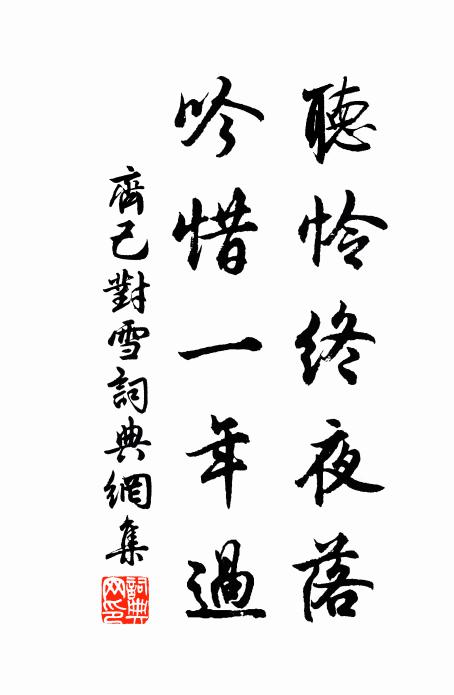 聽怜終夜落
吟惜一年過
齊己對雪詞典網集
詞典